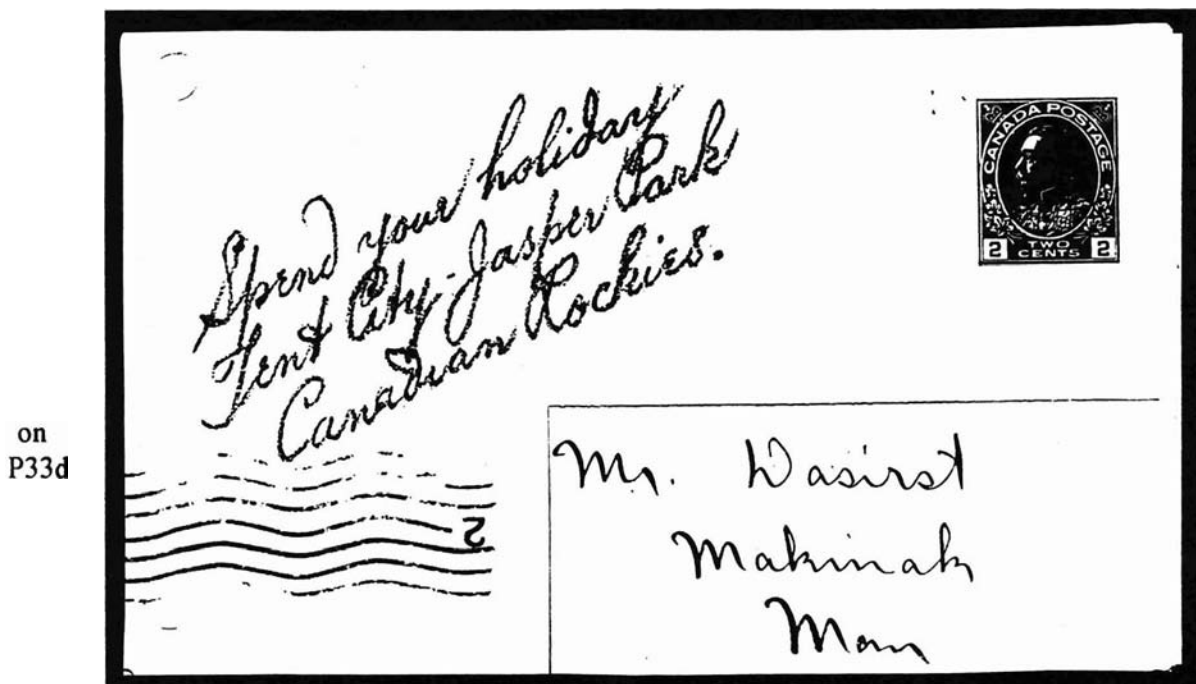 Spend your holiday
Tent City-Jasper Park
Canadian Rockies.
CANADA POSTAGE
2 TWO CENTS 2
on
P33d
2
Mr. Wasirst
Makinak
Man